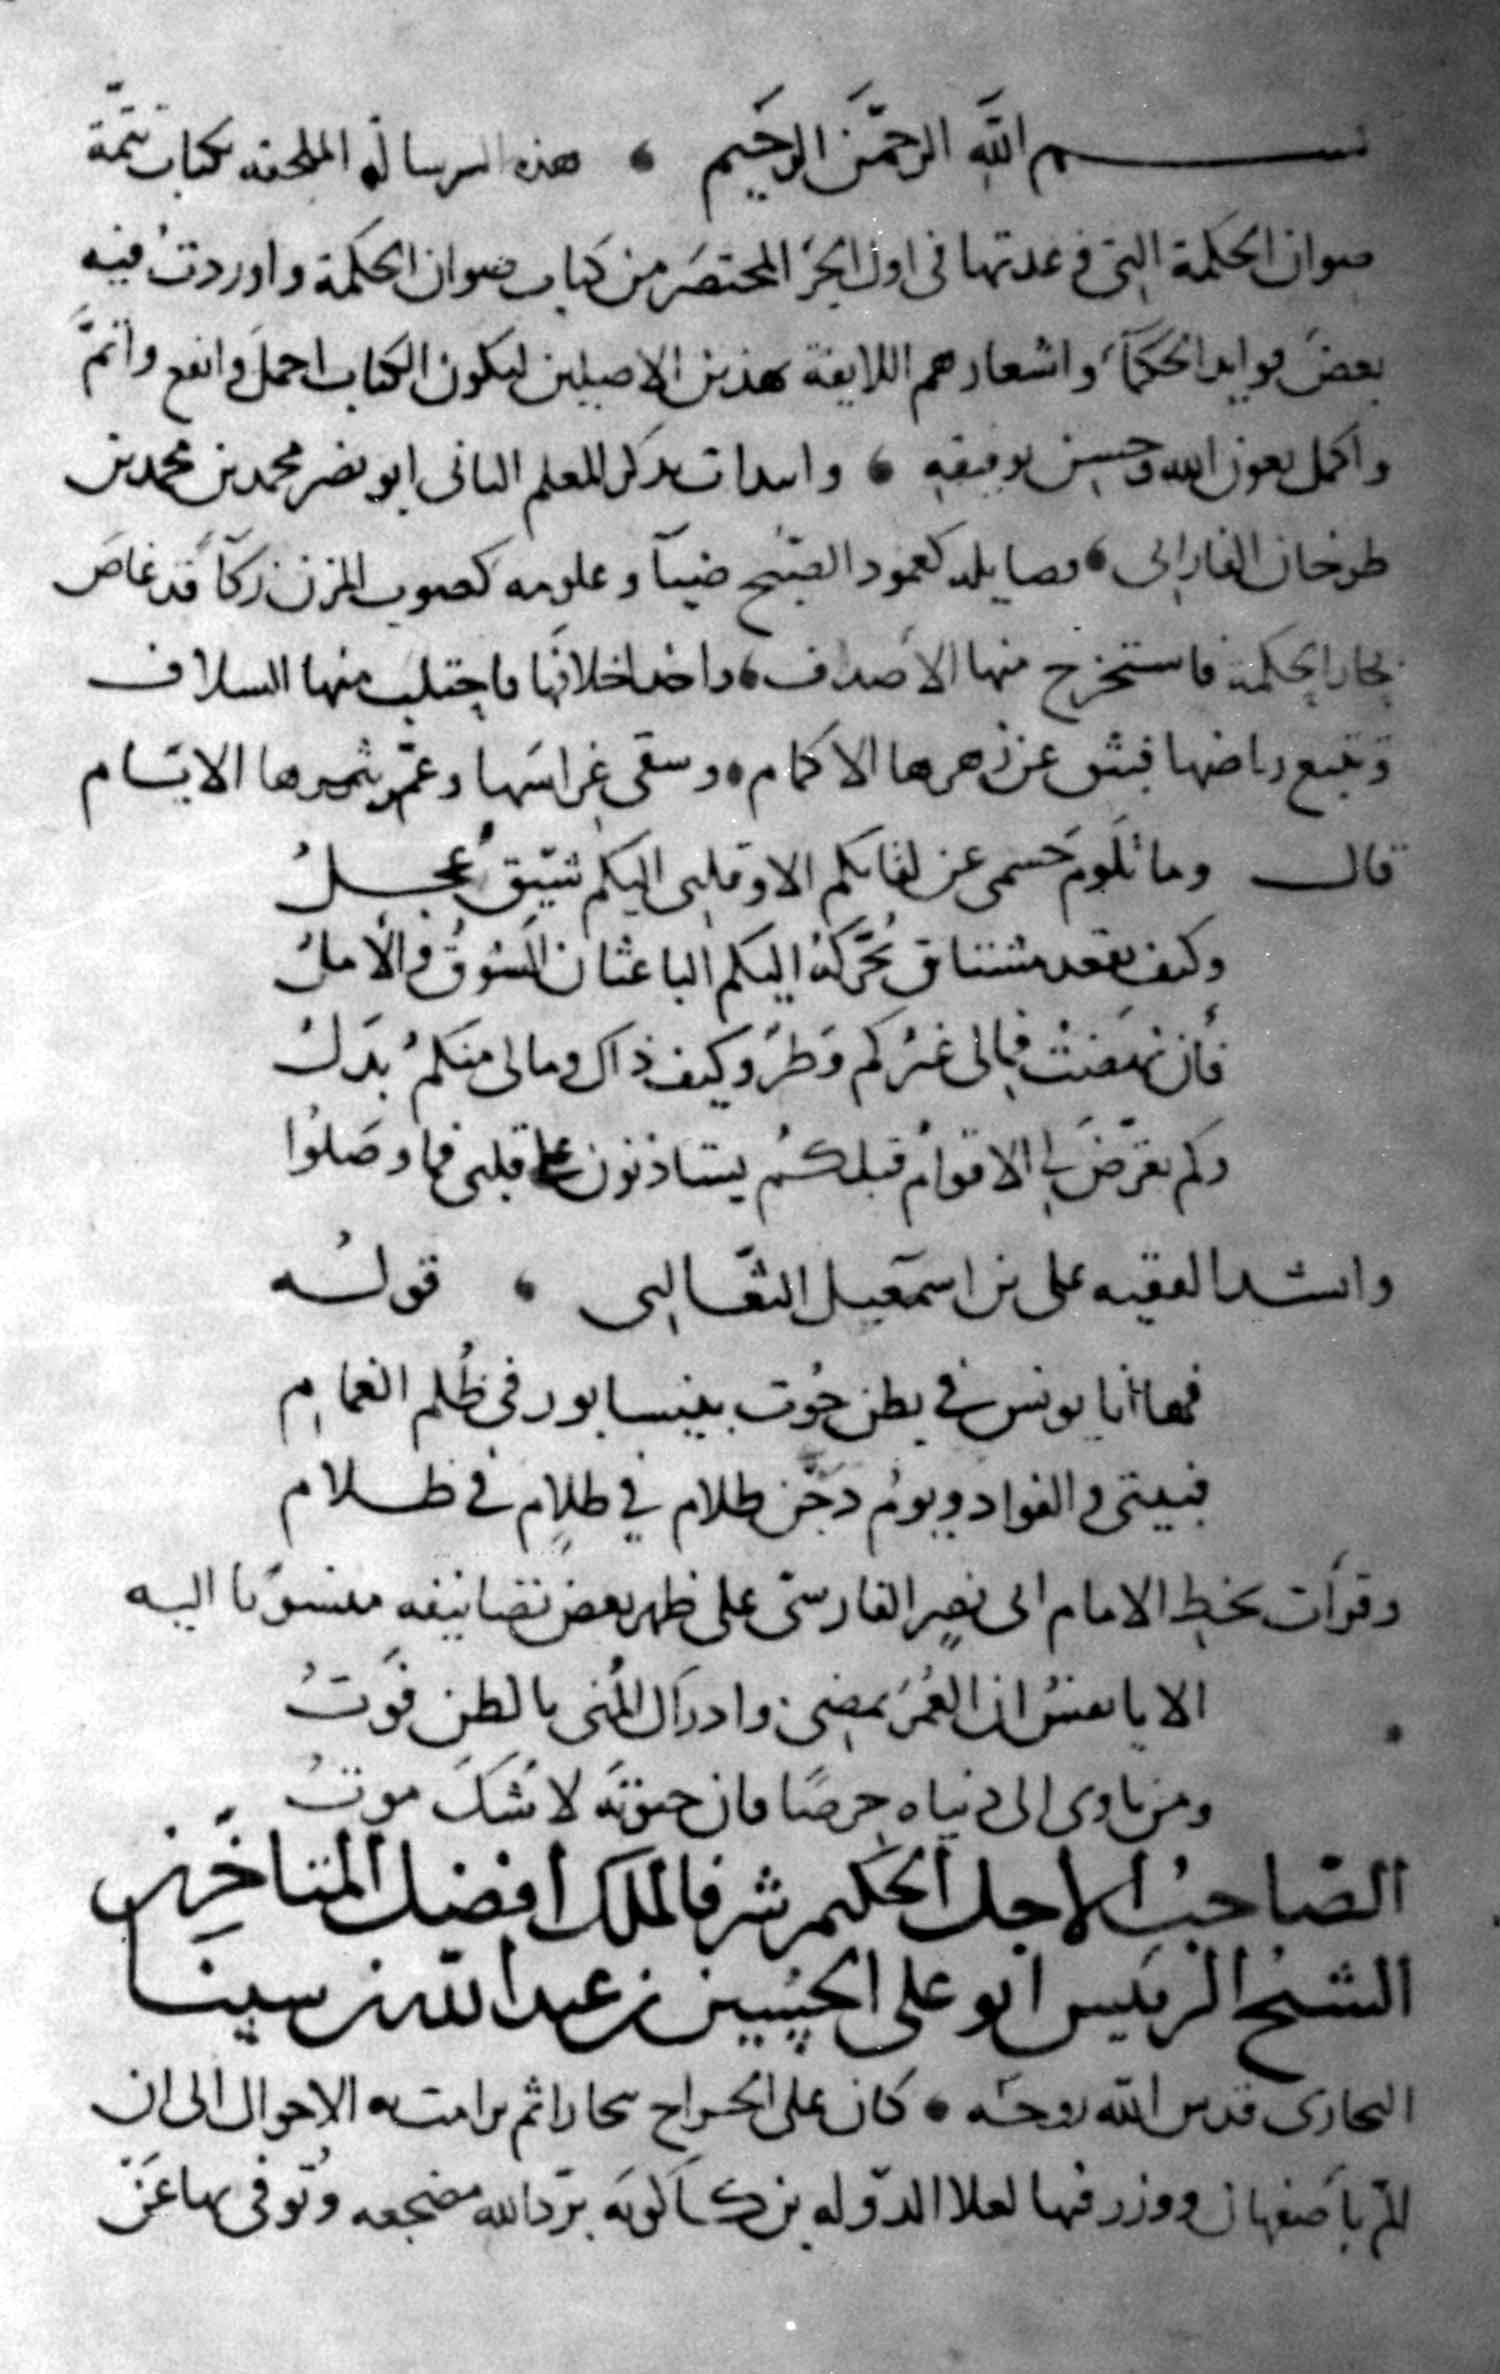 بسم الله الرحمن الرحيم هذه الرسالة الملحقه بكتاب تتمة
صوان الحكمة التى وعدتها فى اول الجزء المختصر من كتاب صوان الحكمة واوردت فيه
بعض فوايد الحكماء واشعارهم اللايقة بهذين الاصلين ليكون الكتاب اجمل وانفع واتم
واكمل بعون الله وحسن توفيقه وابتدات بذكر المعلم الثانى ابو نصر محمد بن محمد بن
طرخان الفارابى فضايله كعمود الصبح ضيآ وعلومه كصوب المزن زكآ قد غاص
بحار الحكمة فاستخرج منها الاصداف واخذ اخلافها فاجتلب منها السلاف
وتتبع رياضها فبش عن زهرها الاكمام وسقى غراسها وعم بثميرها الابتسام
قال وما تلوم جسمى عن لقائكم الا وقلبى اليكم شيق عجل
وكيف يقعد مشتاق يحركه اليكم الباعثان الشوق والامل
فان نهضت فمالى غيركم وطر وكيف ذاك ومالى منكم بدل
وكم تعرض لى الاقوام قبلكم يستاذنون على قلبى فما وصلوا
وانشد الفقيه على بن اسمعيل الثعالبى قوله
فها انا يونس فى بطن حوت بنيسابور فى ظلم الغمام
فبيتى والفواد ويوم دجن ظلام في ظلام في ظلام
وقرأت بخط الامام ابى نصر الفارسى على ظهر بعض تصانيفه منسوبا اليه
الا يا نفس ان العمر يمضى وادراك المنى بالظن فوت
ومن ياوى الى دنياه حرصا فان حيوته لا شك موت
الصاحب الاجل الحكيم شرف الملك افضل المتاخرين
الشيخ الرئيس ابو على الحسين بن عبد الله بن سينا
البخارى قدس الله روحه كان على الخراج ببخارا ثم ترامت به الاحوال الى ان
الم باصفهان ووزر فيها لعلا الدوله بن كاكويه برد الله مضجعه وتوفى بها عن